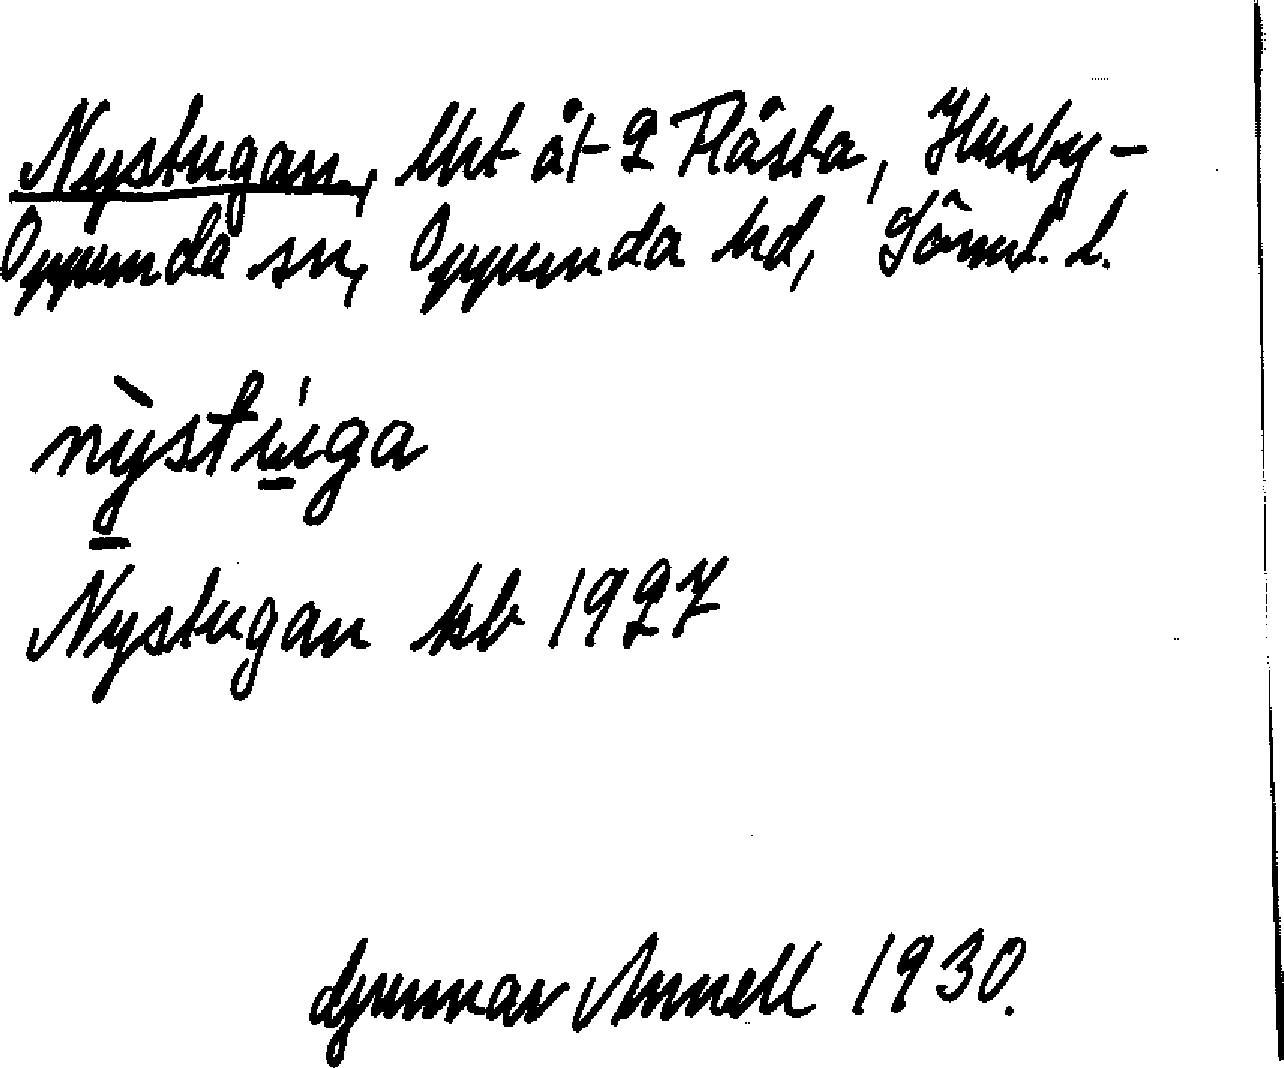 Nystugan, lht åt 2 Flåsta, Husby-
Oppunda sn, Oppunda hd, Sörml. l.
nỳstúga
Nystugan kb 1927
Gunnar Annell 1930.